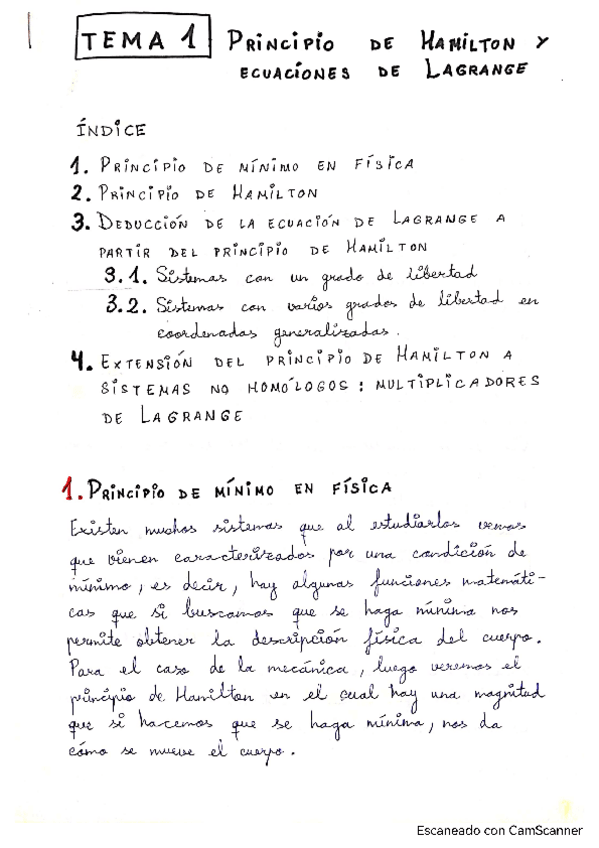 TEMA 1 PRINCIPIO DE HAMILTON Y
ECUACIONES DE LAGRANGE
ÍNDICE
1. PRINCIPIO DE MÍNIMO EN FÍSICA
2. PRINCIPIO DE HAMILTON
3. DEDUCCIÓN DE LA ECUACIÓN DE LAGRANGE A
PARTIR DEL PRINCIPIO DE HAMILTON
3.1. Sistemas con un grado de libertad
3.2. Sistemas con varios grados de libertad en
coordenadas generalizadas.
4. EXTENSIÓN DEL PRINCIPIO DE HAMILTON A
SISTEMAS NO HOMÓLOGOS: MULTIPLICADORES
DE LAGRANGE
1. PRINCIPIO DE MÍNIMO EN FÍSICA
Existen muchos sistemas que al estudiarlos vemos
que vienen caracterizados por una condición de
mínimo, es decir, hay algunas funciones matemáti-
cas que si buscamos que se haga mínima nos
permite obtener la descripción física del cuerpo.
Para el caso de la mecánica, luego veremos el
principio de Hamilton en el cual hay una magnitud
que si hacemos que se haga mínima, nos da
cómo se mueve el cuerpo.
Escaneado con CamScanner